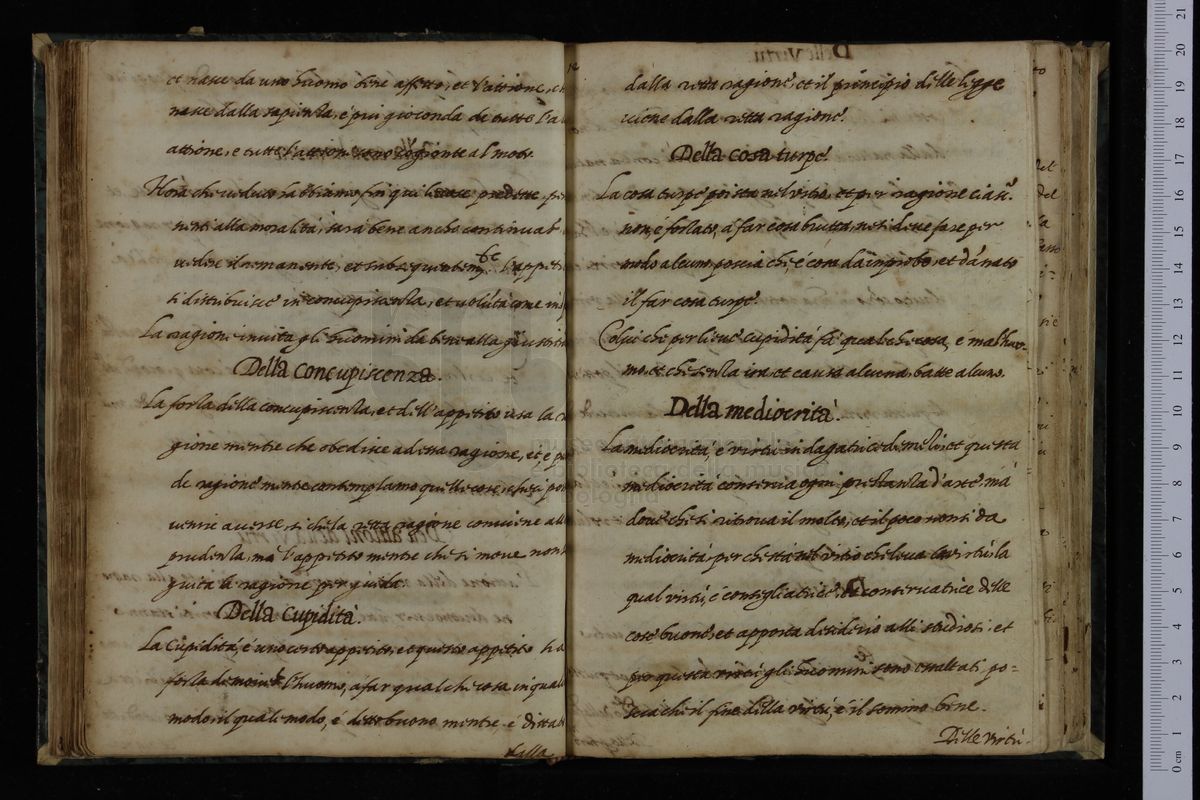 et nasce da uno huomo bene affetto, et l'attione, ch
nasce dalla sapienza, è piu gioconda de tutte l'al
attione, e tutte l'attioni sono cogionte al moto.
Hora che veduto habbiamo fin qui le cose predette
nenti alla moralità, sarà bene anche continuar
vedere il rimanente, et subsequentem.te l'appeti
si distribuisce in concupiscenza, et volutà come
La ragione invita gli huomini da bene alla giustiti
Della Concupiscenza.
La forza della concupiscenza, et dell'appetito usa la
gione mentre che obedisce ad essa ragione, et è
de ragione mente contemplamo quelle cose, che si
venire averse, si che la retta ragione conviene all
prudenza, ma l'appetito mentre che si move non
guita la ragione per guida.
Della Cupidità.
La Cupidità è uno certo appetito, e questo appetito ha
forza de l'huomo, a far qual che cosa in qual
modo, il quale modo, è detto buono, mentre è ditta
dalla
12
dalla retta ragione, et il principio delle legge
viene dalla retta ragione.
Della cosa turpe.
La cosa turpe posta nel vitio, et per ragione
non, è forzato, a far cosa brutta, ne si deve fare per
modo alcuno, poscia che, è cosa da improbo, et dānato
il far cosa turpe.
Colui che per lieve cupidità fà qualche cosa, è mal huo-
mo, et che senza ira, et causa alcuna, batte alcuno.
Della mediocrità.
La mediocrità, è virtù indagatrice de et questa
mediocrità contenia ogni prestanza d'arte, mà
dove che si ritrova il molto, et il poco non si da
mediocrità, perche stà nel vitio che leva la virtù, la
qual virtù, è consigliatrice, conservatrice delle
cose buone, et apporta desiderio alli studiosi, et
per questa virtù gli huomini sono esaltati po=
scia che il fine della virtù, è il sommo bene.
Delle virtù.